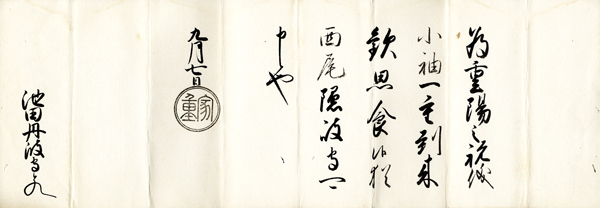 為重陽之祝儀
小袖一重到来
歓思食候猶
西尾隠岐守可
申也
九月七日
家重
池田丹波守とのへ